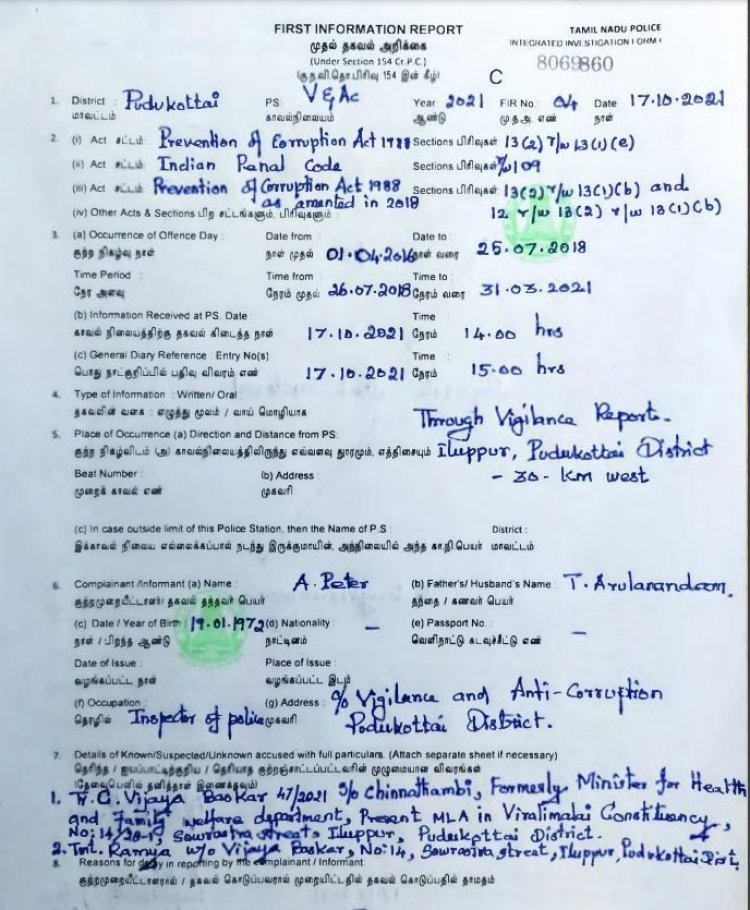 FIRST INFORMATION REPORT
TAMIL NADU POLICE
முதல் தகவல் அறிக்கை
INTEGRATED INVESTIGATION FORM I
(Under Section 154 Cr.P.C.)
(கு.ந.வி.தொ.பிரிவு 154 இன் கீழ்)
C
8069860
1. District : Pudukottai PS: V&AC Year 2021 FIR No: 04 Date 17.10.2021
மாவட்டம் காவல்நிலையம் ஆண்டு மு.த.அ. எண் நாள்
2. (i) Act சட்டம்: Prevention of Corruption Act 1988 Sections பிரிவுகள் 13(2) r/w 13(1)(e)
(ii) Act சட்டம்: Indian Panal Code Sections பிரிவுகள் 109
(iii) Act சட்டம்: Prevention of Corruption Act 1988 Sections பிரிவுகள் 13(2) r/w 13(1)(b) and
as amanted in 2018
(iv) Other Acts & Sections பிற சட்டங்களும், பிரிவுகளும் : 12 r/w 13(2) r/w 13(1)(b)
3. (a) Occurrence of Offence Day : Date from Date to :
குற்ற நிகழ்வு நாள் நாள் முதல் 01.04.2016 நாள் வரை 25.07.2018
Time Period : Time from Time to :
நேர அளவு நேரம் முதல் 26.07.2018 நேரம் வரை 31.03.2021
(b) Information Received at PS. Date : Time :
காவல் நிலையத்திற்கு தகவல் கிடைத்த நாள் 17.10.2021 நேரம் 14.00 hrs
(c) General Diary Reference : Entry No(s) Time :
பொது நாட்குறிப்பில் பதிவு விவரம் எண் 17.10.2021 நேரம் 15.00 hrs
4. Type of Information : Written/ Oral :
தகவலின் வகை : எழுத்து மூலம் / வாய் மொழியாக Through Vigilance Report.
5. Place of Occurrence (a) Direction and Distance from PS:
குற்ற நிகழ்விடம் (அ) காவல்நிலையத்திலிருந்து எவ்வளவு தூரமும், எத்திசையும் Iluppur, Pudukottai District
Beat Number : (b) Address : - 30 - Km west
முறைக் காவல் எண் முகவரி
(c) In case outside limit of this Police Station, then the Name of P.S : District :
இக்காவல் நிலைய எல்லைக்கப்பால் நடந்து இருக்குமாயின், அந்நிலையில் அந்த கா.நி.பெயர் மாவட்டம்
6. Complainant /Informant (a) Name : A. Peter (b) Father's/ Husband's Name : T. Arulanandam.
குற்றமுறையீட்டாளர்/ தகவல் தந்தவர் பெயர் தந்தை / கணவர் பெயர்
(c) Date / Year of Birth : 19.01.1972 (d) Nationality : - (e) Passport No. : -
நாள் / பிறந்த ஆண்டு நாட்டினம் வெளிநாட்டு கடவுச்சீட்டு எண்
Date of Issue : Place of Issue :
வழங்கப்பட்ட நாள் வழங்கப்பட்ட இடம்
(f) Occupation : (g) Address : O/o Vigilance and Anti-Corruption
தொழில் Inspector of police முகவரி Pudukottai District.
7. Details of Known/Suspected/Unknown accused with full particulars. (Attach separate sheet if necessary)
தெரிந்த / ஐயப்பாட்டிற்குரிய / தெரியாத குற்றஞ்சாட்டப்பட்டவரின் முழுமையான விவரங்கள்
(தேவையெனில் தனித்தாள் இணைக்கவும்)
1. Tr. C. Vijaya Baskar 47/2021 S/o Chinnathambi, Formerly Minister for Health
and Family welfare department, Present MLA in Viralimalai Constituency,
No: 14/ Sowrastra street, Iluppur, Pudukottai District.
2. Tmt. Ramya W/o Vijaya Baskar, No:14, Sowrastra street, Iluppur, Pudukottai Dist.
8. Reasons for delay in reporting by the complainant / Informant
குற்றமுறையீட்டாளரால் / தகவல் கொடுப்பவரால் முறையிட்டதில் தகவல் கொடுப்பதில் தாமதம்